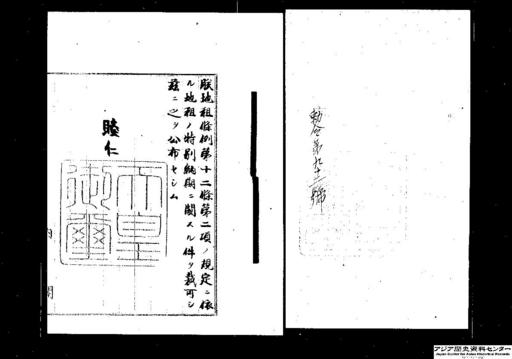 勅令第九十三號
朕地租條例第十二條第二項ノ規定ニ依
ル地租ノ特別納期ニ關スル件ヲ裁可シ
茲ニ之ヲ公布セシム
睦仁
天皇御璽
内閣
アジア歴史資料センター
Japan Center for Asian Historical Records